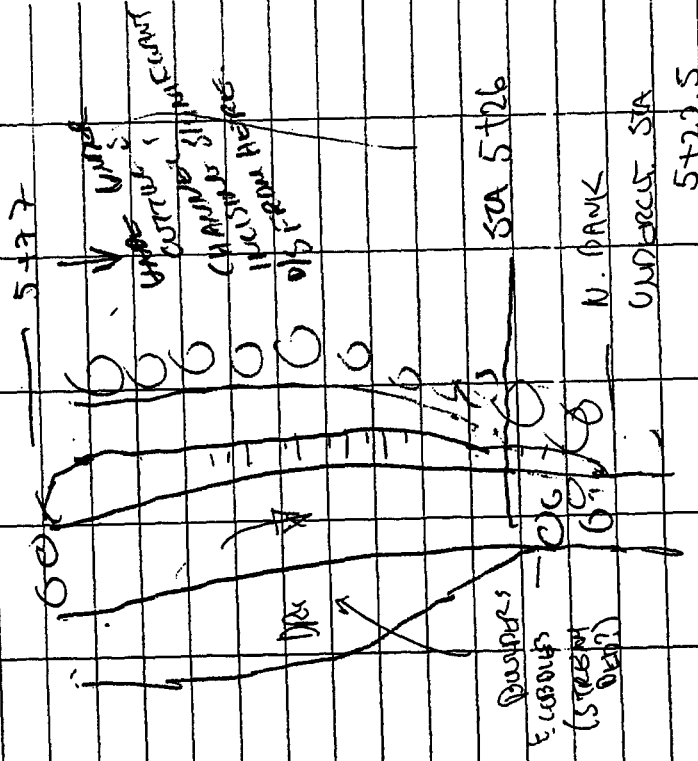 5+77
UNDER
CUTTING &
CHANNEL
INCISION
D/S FROM HERE
STA 5+26
N. BANK
UNDERCUT STA
5+22.5
DRY
BOULDERS
& COBBLES
(STREAM
BED?)